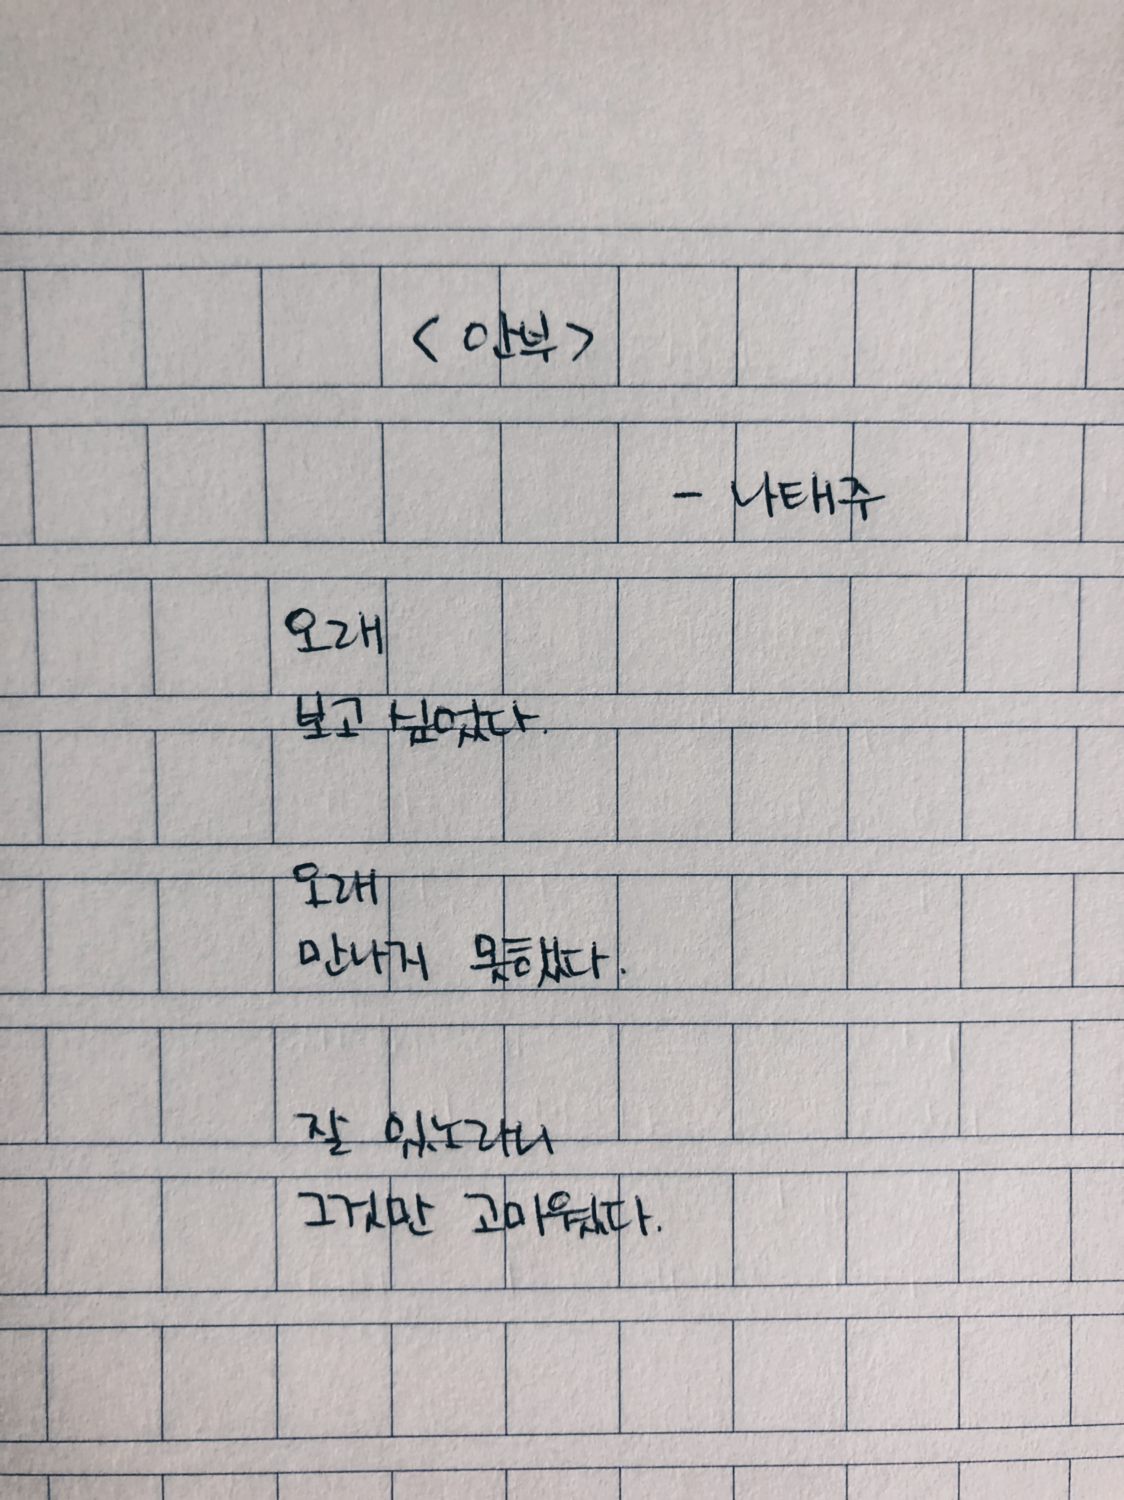 <안부>
- 나태주
오래
보고 싶었다.
오래
만나지 못했다.
잘 있노라니
그것만 고마웠다.